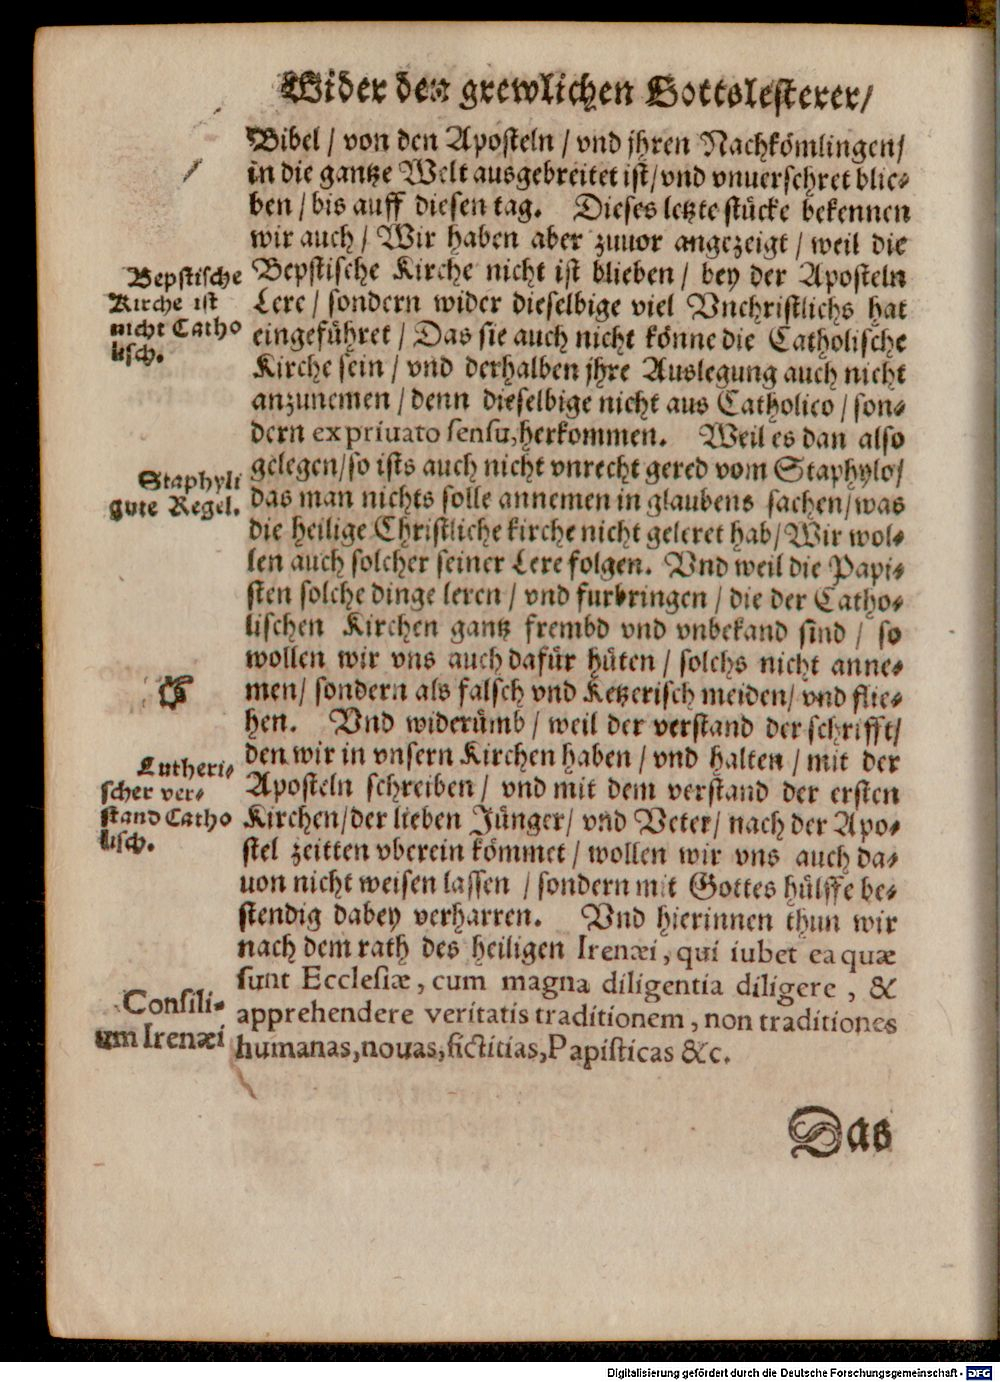 Wider den grewlichen Gottslesterer/
Bibel / von den Aposteln / vnd jhren Nachkömlingen/
in die gantze Welt ausgebreitet ist/vnd vnuersehret blie-
ben / bis auff diesen tag. Dieses letzte stücke bekennen
wir auch / Wir haben aber zuuor angezeigt / weil die
Bepstische Kirche ist nicht Catho lisch.
Bepstische Kirche nicht ist blieben / bey der Aposteln
Lere / sondern wider dieselbige viel Vnchristlichs hat
eingeführet / Das sie auch nicht könne die Catholische
Kirche sein / vnd derhalben jhre Auslegung auch nicht
anzunemen / denn dieselbige nicht aus Catholico / son-
dern ex priuato sensu, herkommen. Weil es dan also
Staphyli gute Regel.
gelegen/so ists auch nicht vnrecht gered vom Staphylo/
das man nichts solle annemen in glaubens sachen/was
die heilige Christliche kirche nicht geleret hab/Wir wol-
len auch solcher seiner Lere folgen. Vnd weil die Papi-
sten solche dinge leren / vnd furbringen / die der Catho-
lischen Kirchen gantz frembd vnd vnbekand sind / so
wollen wir vns auch dafür hüten / solchs nicht anne-
☞
men/ sondern als falsch vnd Ketzerisch meiden/ vnd flie-
hen. Vnd widerümb / weil der verstand der schrifft/
den wir in vnsern Kirchen haben / vnd halten / mit der
Lutheri- scher ver- stand Catho lisch.
Aposteln schreiben / vnd mit dem verstand der ersten
Kirchen/der lieben Jünger/ vnd Veter/ nach der Apo-
stel zeitten vberein kömmet / wollen wir vns auch da-
uon nicht weisen lassen / sondern mit Gottes hülffe be-
stendig dabey verharren. Vnd hierinnen thun wir
nach dem rath des heiligen Irenæi, qui iubet ea quæ
Consili- um Irenæi
sunt Ecclesiæ, cum magna diligentia diligere, &
apprehendere veritatis traditionem, non traditiones
humanas, nouas, fictitias, Papisticas &c.
Das
Digitalisierung gefördert durch die Deutsche Forschungsgemeinschaft - DFG